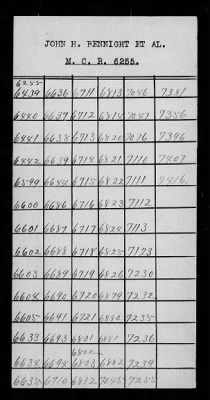 JOHN H. BENNIGHT ET AL.
M. C. R. 6255.
6255
6439 6636 6711 6813 7046 7331
6440 6637 6712 6814 7047 7356
6441 6638 6713 6820 7076 7396
6442 6639 6714 6821 7110 7407
6599 6644 6715 6822 7111 7416
6600 6686 6716 6823 7112
6601 6687 6717 6824 7113
6602 6688 6718 6825 7123
6603 6689 6719 6826 7230
6604 6690 6720 6879 7232
6605 6691 6721 6880 7235
6633 6693 6801 6881 7236
6802
6634 6694 6803 6882 7239
6635 6710 6812 7045 7255